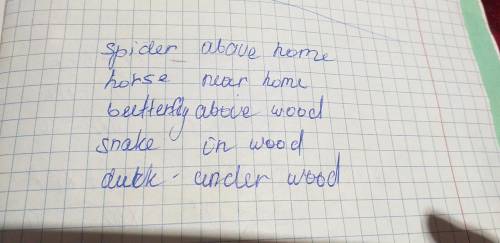 spider above home
horse near home
butterfly above wood
snake in wood
duck - under wood